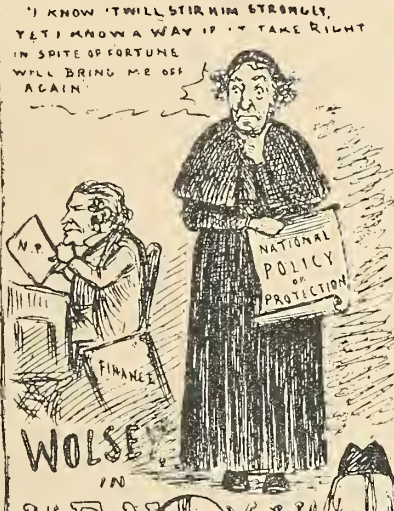 'I KNOW 'TWILL STIR HIM STRONGLY,
YET I KNOW A WAY IF IT TAKE RIGHT
IN SPITE OF FORTUNE
WILL BRING ME OFF
AGAIN
N.P.
NATIONAL
POLICY
OR
PROTECTION
FINANCE
WOLSE
IN